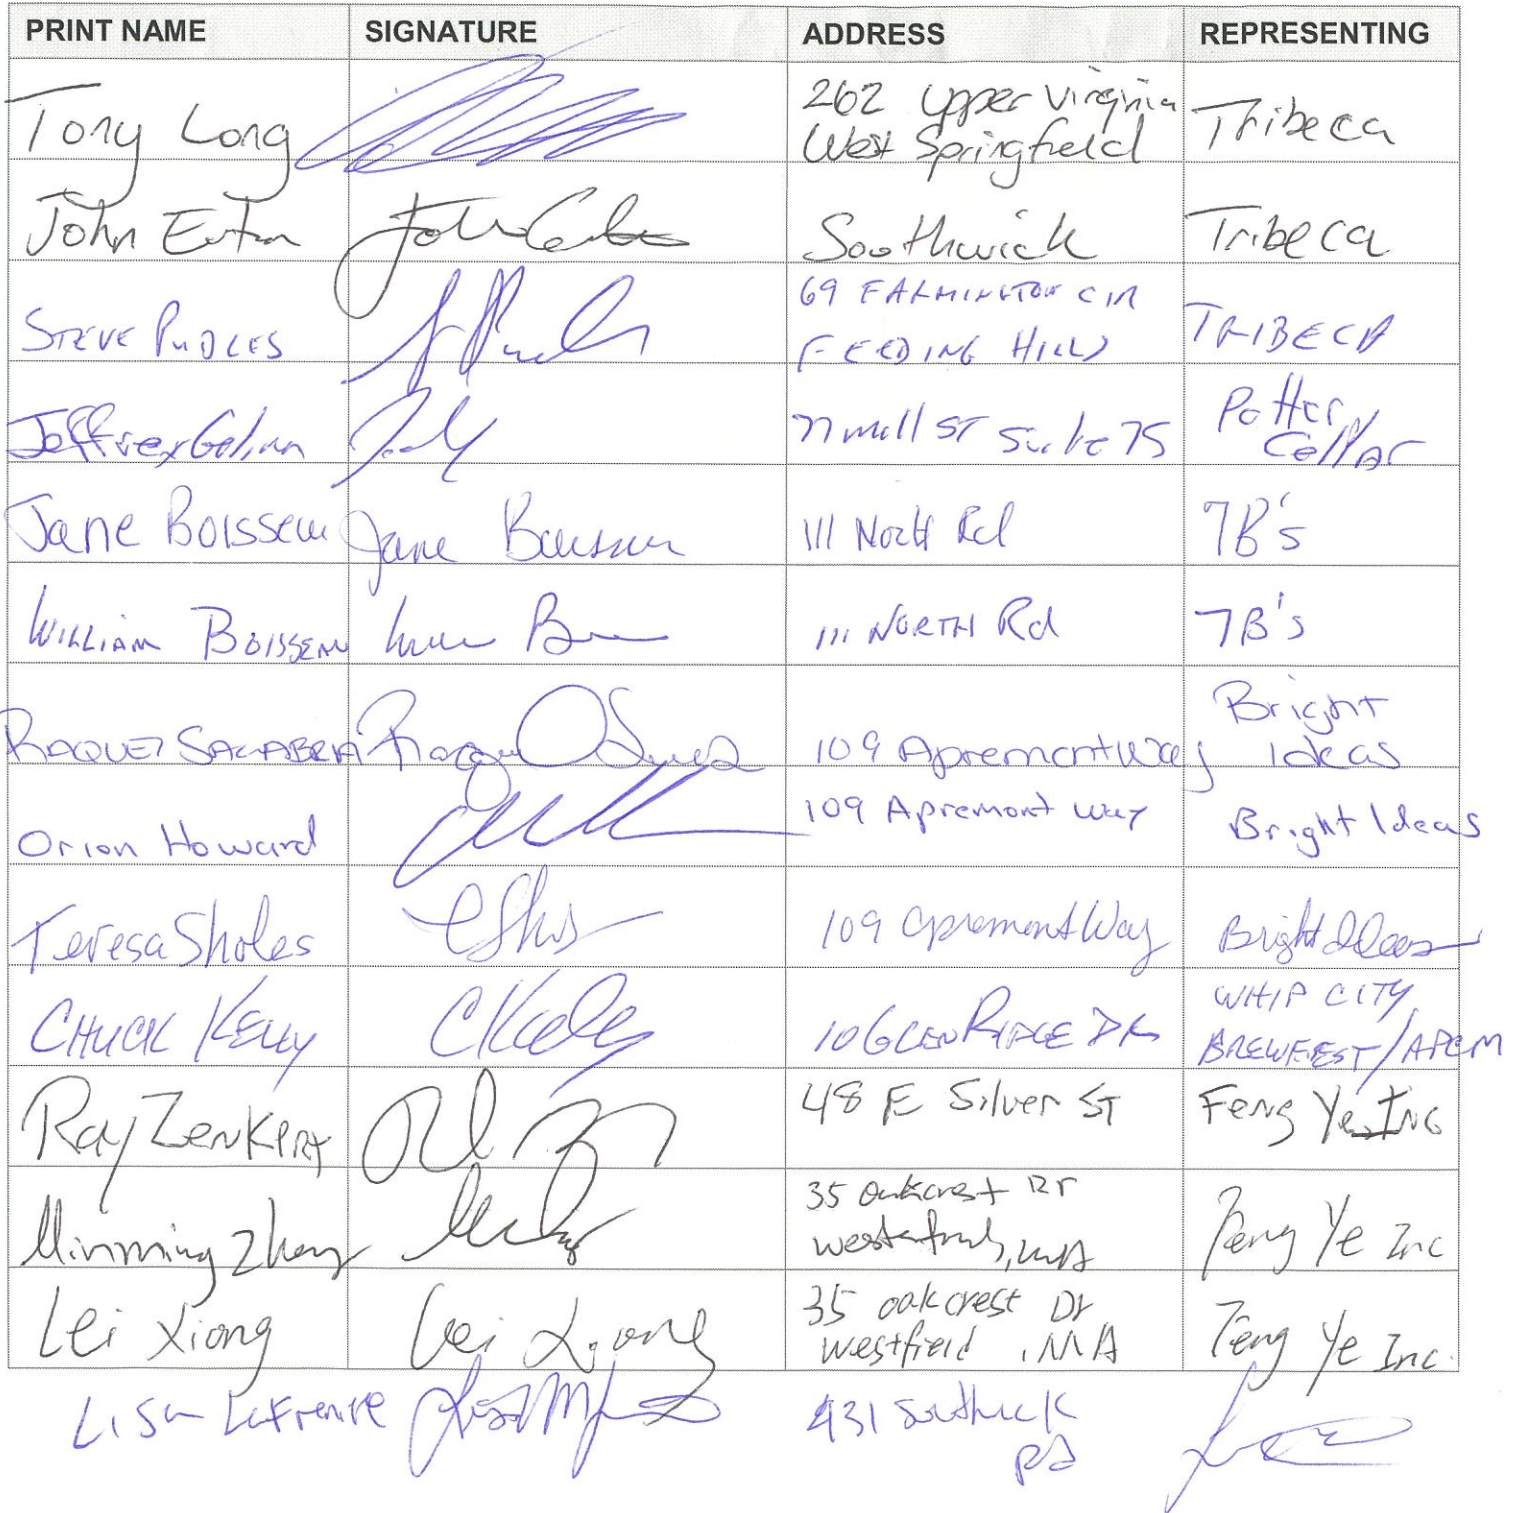 PRINT NAME SIGNATURE ADDRESS REPRESENTING
Tony Long 262 Upper Virginia West Springfield Tribeca
John Southwick Tribeca
STEVE PUDLES 69 FARMINGTON CIR FEEDING HILLS TRIBECA
Jeffrey 77 mill ST Suite 75 Potter Cellar
Jane Boisseau Jane 111 North Rd 7B's
WILLIAM BOISSEAU 111 NORTH Rd 7B's
RAQUEL 109 Apremont Way Bright Ideas
Orion Howard 109 Apremont Way Bright Ideas
Teresa Sholes 109 Apremont Way Bright Ideas
CHUCK KELLY CKelly 10 GLEN RIDGE DR WHIP CITY BREWFEST/APCM
Ray Zenkert 48 E Silver ST Feng Ye Inc
Minming Zheng 35 Oakcrest Dr Westfield, MA Feng Ye Inc
Lei Xiong Lei Xiong 35 oakcrest Dr Westfield, MA Feng Ye Inc.
Lisa 431 Southwick Rd